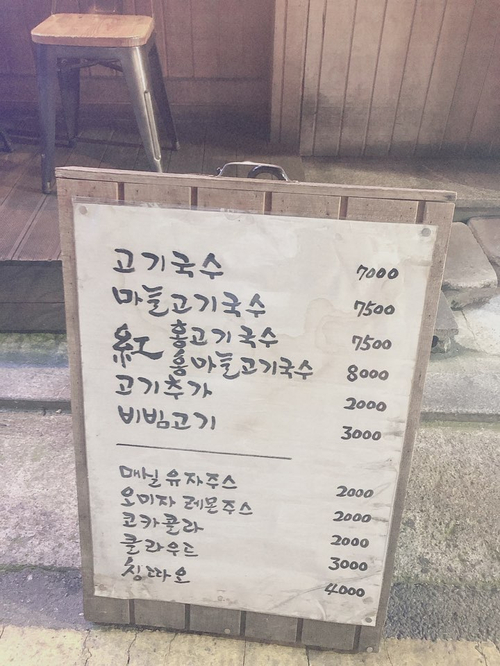 고기국수 7000
마늘고기국수 7500
紅 홍고기국수 7500
홍마늘고기국수 8000
고기추가 2000
비빔고기 3000
매실유자주스 2000
오미자 레몬주스 2000
코카콜라 2000
클라우드 3000
칭따오 4000